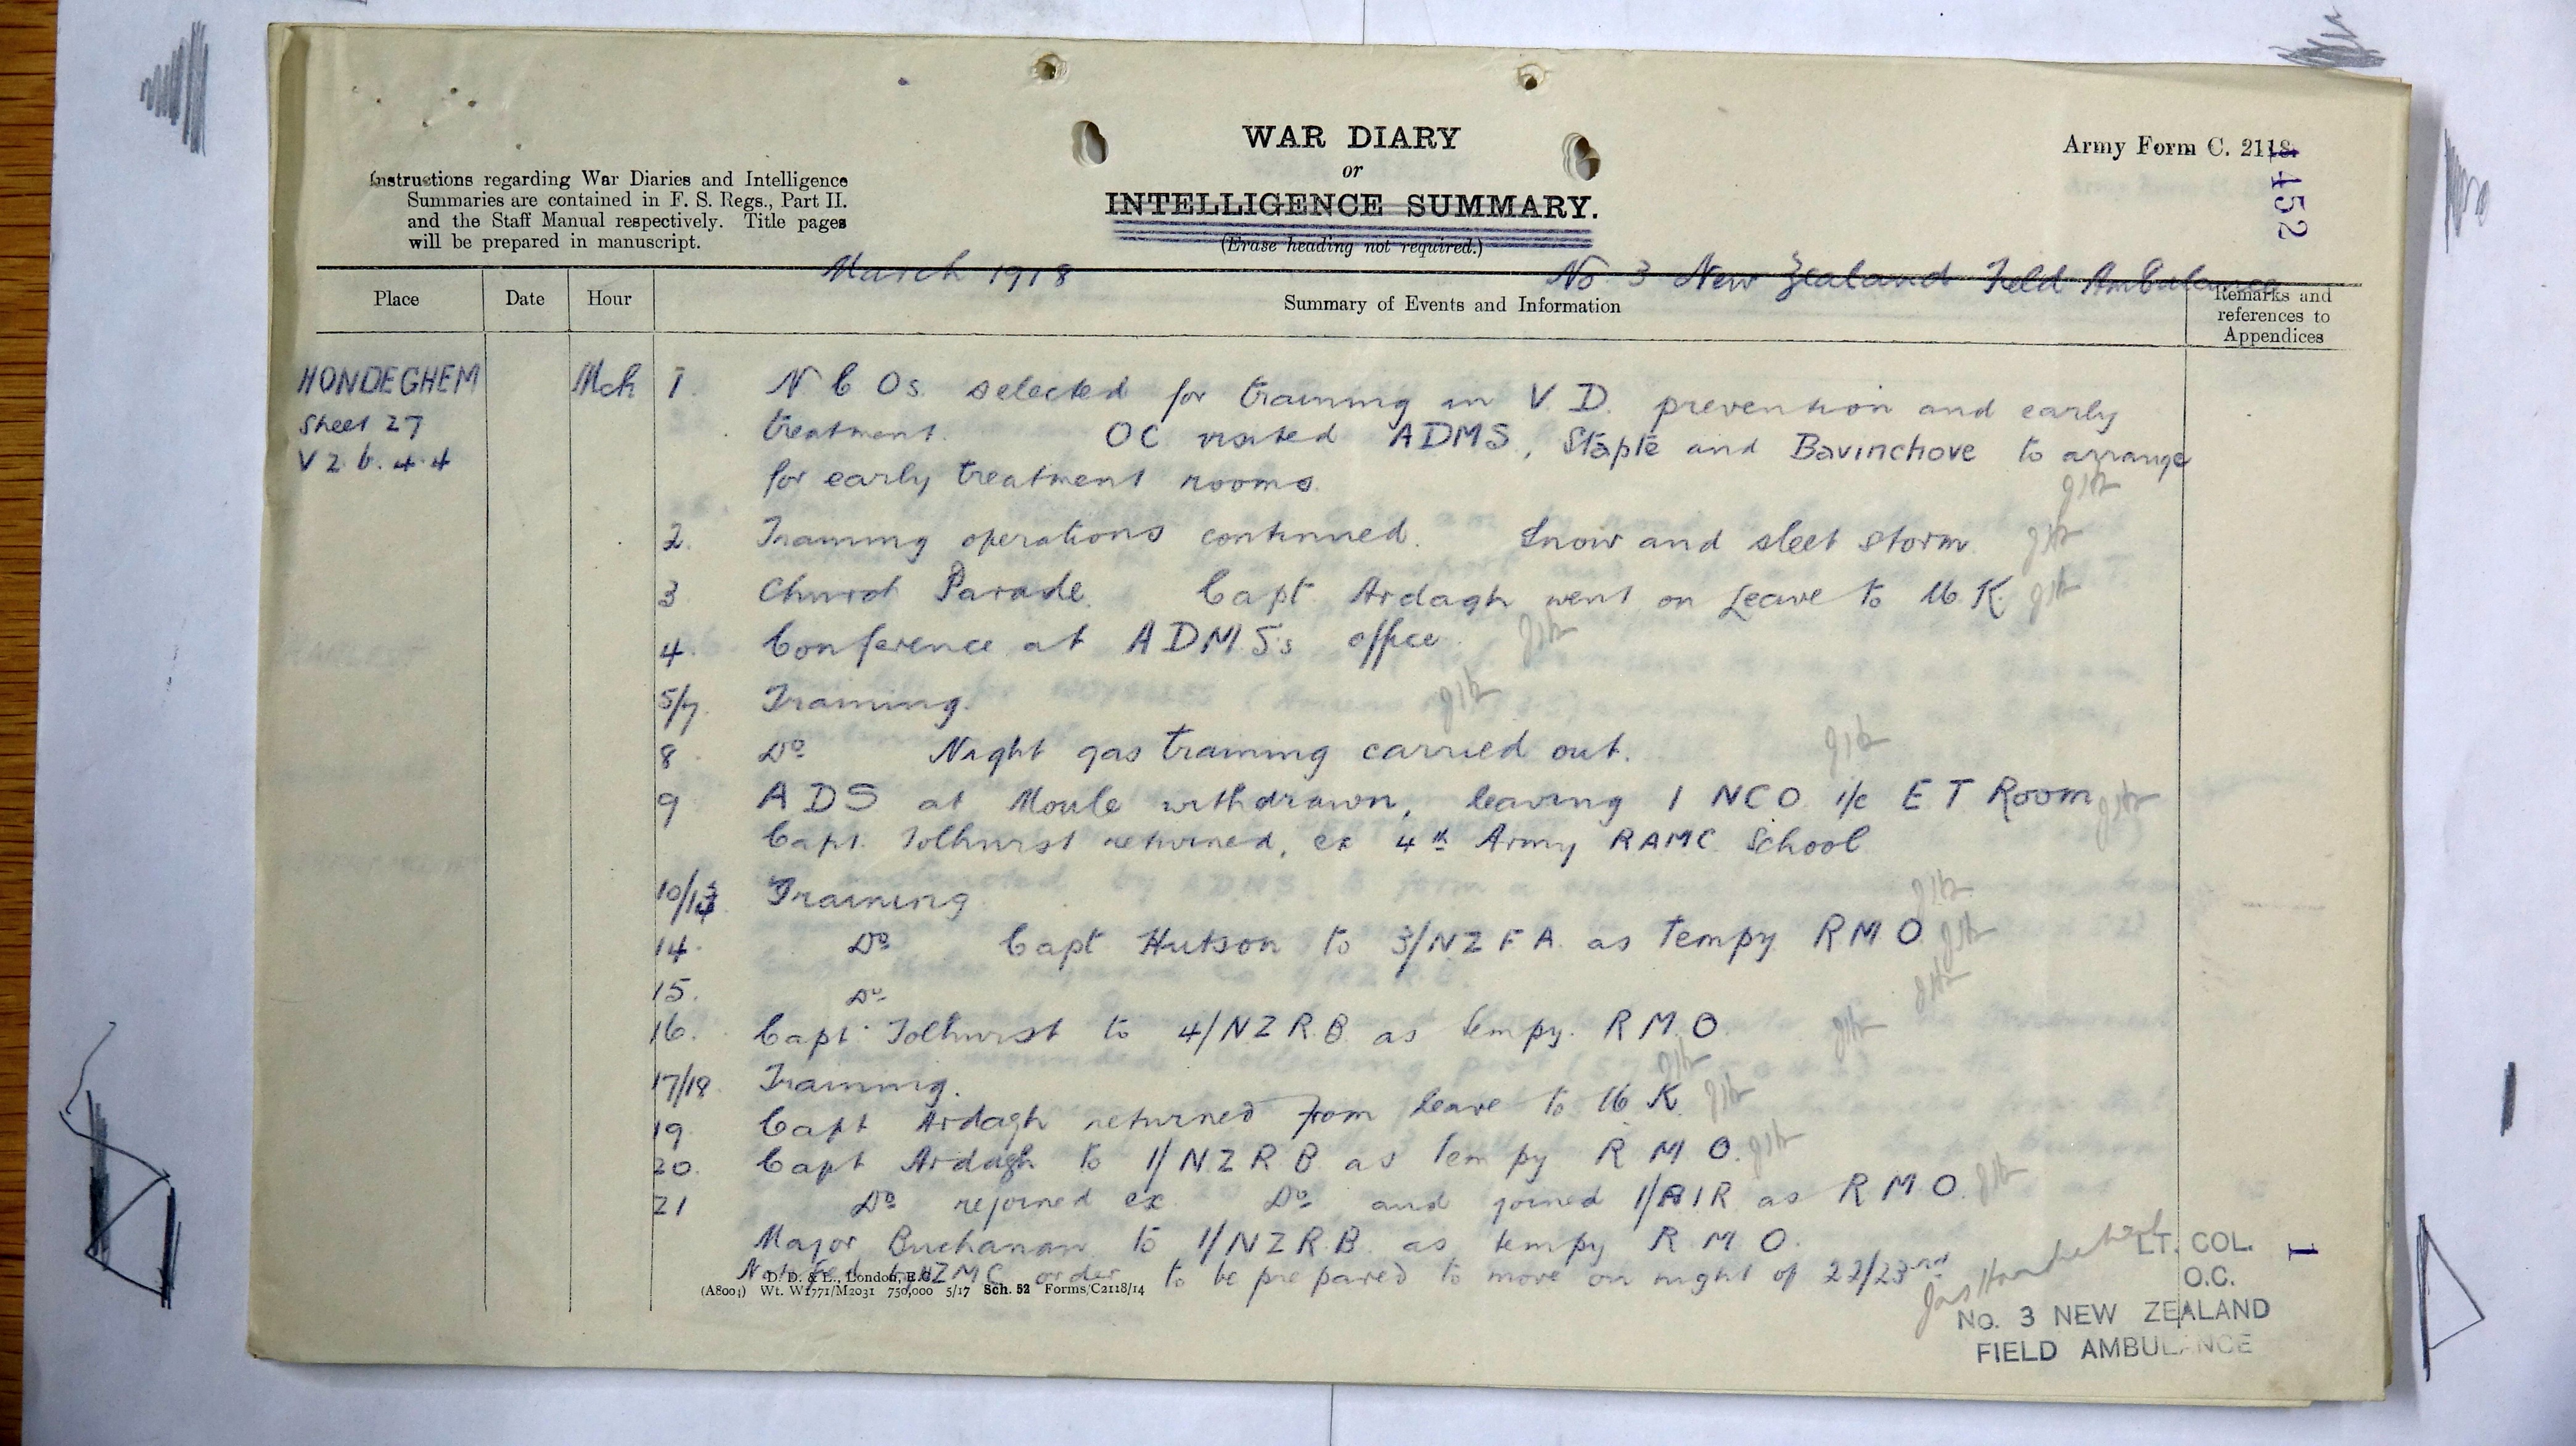 WAR DIARY
or
INTELLIGENCE SUMMARY.
(Erase heading not required.)
Army Form C. 2118.
1452
Instructions regarding War Diaries and Intelligence
Summaries are contained in F. S. Regs., Part II.
and the Staff Manual respectively. Title pages
will be prepared in manuscript.
March 1918 No 3 New Zealand Field Ambulance
Place Date Hour Summary of Events and Information Remarks and
references to
Appendices
HONDEGHEM
Sheet 27
V 2. b. 4.4
Mch 1. N C Os. selected for training in V. D. prevention and early
treatment. OC visited ADMS, Staple and Bavinchove to arrange
for early treatment rooms.
2. Training operations continued. Snow and sleet storm
3 Church Parade. Capt. Ardagh went on Leave to U.K.
4. Conference at A D M S's office.
5/7. Training.
8 Do Night gas training carried out.
9 A D S at Moule withdrawn, leaving 1 NCO i/c E T Room
Capt. Tolhurst returned, ex 4th Army RAMC School
10/13 Training
14. Do Capt Hutson to 3/NZFA. as tempy RMO
15. Do
16. Capt. Tolhurst to 4/NZR.B as tempy. R.M.O.
17/18 Training.
19. Capt Ardagh returned from leave to U K.
20. Capt Ardagh to 1/NZRB as tempy R M O.
21 Do rejoined ex Do and joined 1/AIR as R M O.
Major Buchanan to 1/NZRB. as tempy R M O.
order to be prepared to move on night of 22/23rd
D. D. & L., London, E.C.
(A8004) Wt. W1771/M2031 750,000 5/17 Sch. 52 Forms/C2118/14
LT. COL.
O.C.
NO. 3 NEW ZEALAND
FIELD AMBULANCE
1